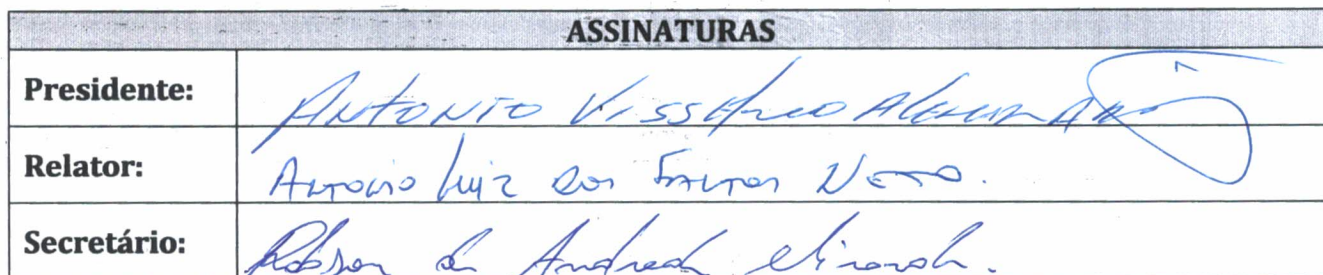 ASSINATURAS
Presidente: ANTONIO
Relator: Antonio Luiz dos Santos Neto.
Secretário: Robson de Andrade Miranda.